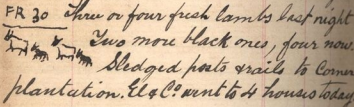 FR 30 Three or four fresh lambs last night
Two more black ones, four now
Sledged posts & rails to corner
plantation. El & Co went to 4 houses today